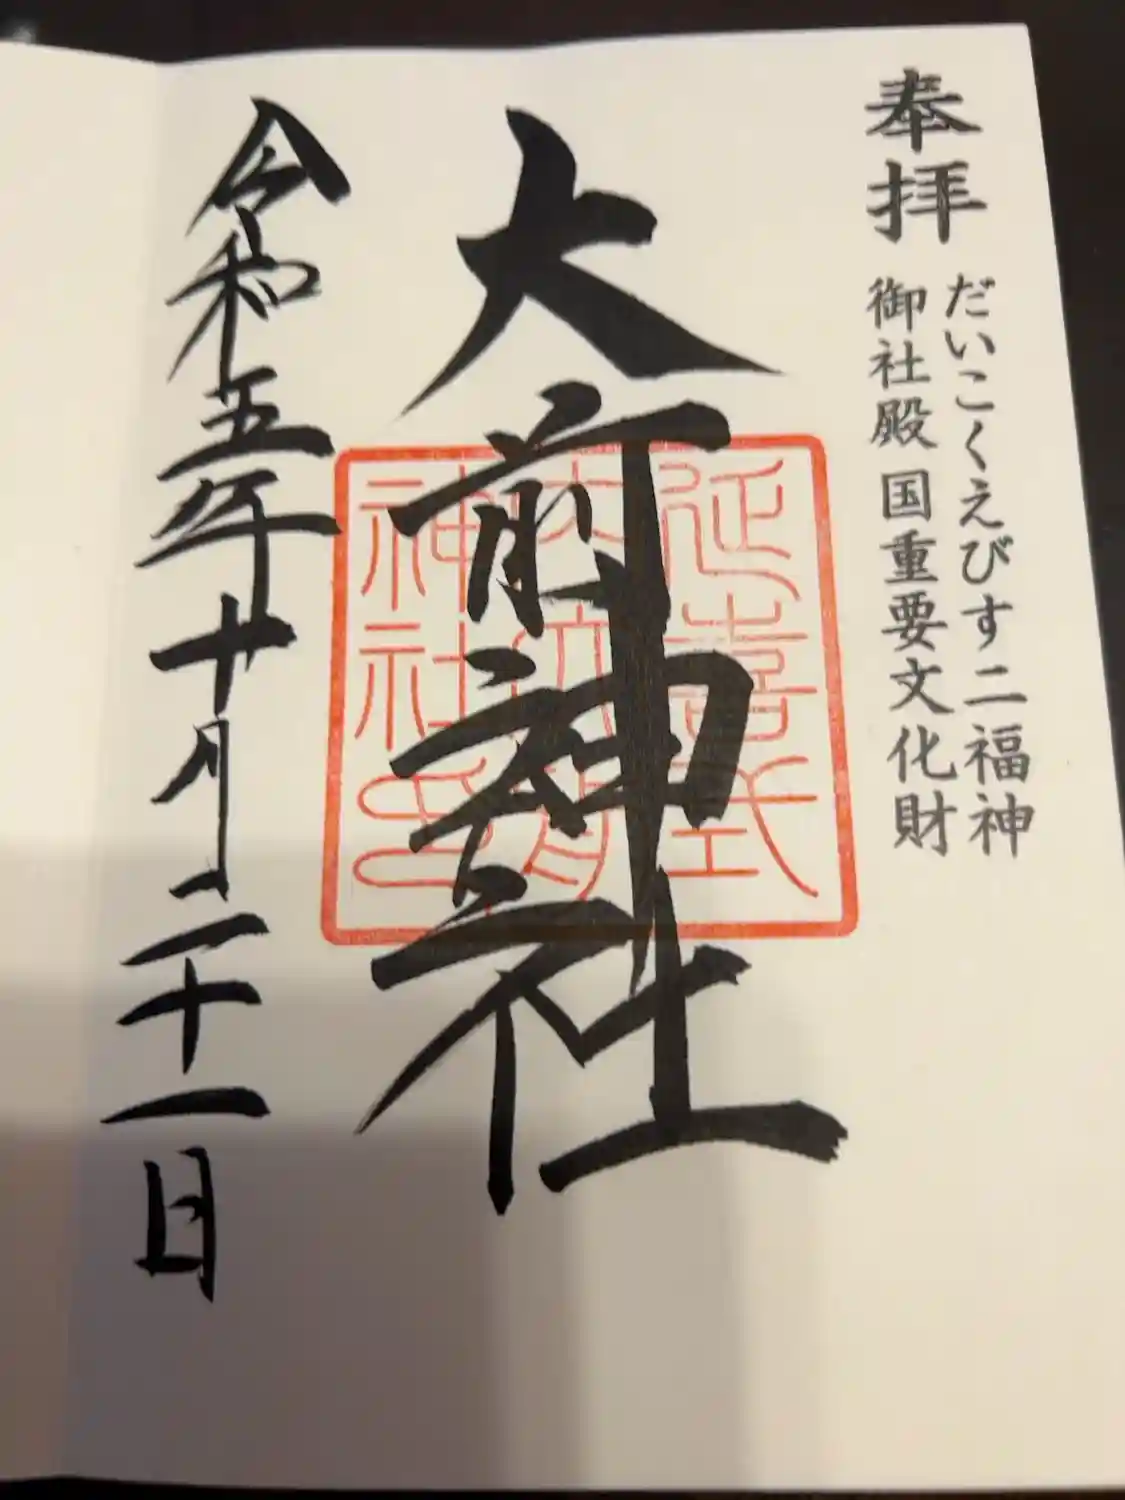 奉拝
だいこくえびす二福神
御社殿 国重要文化財
大前神社
延喜式
内大前
神社印
令和五年十月二十一日